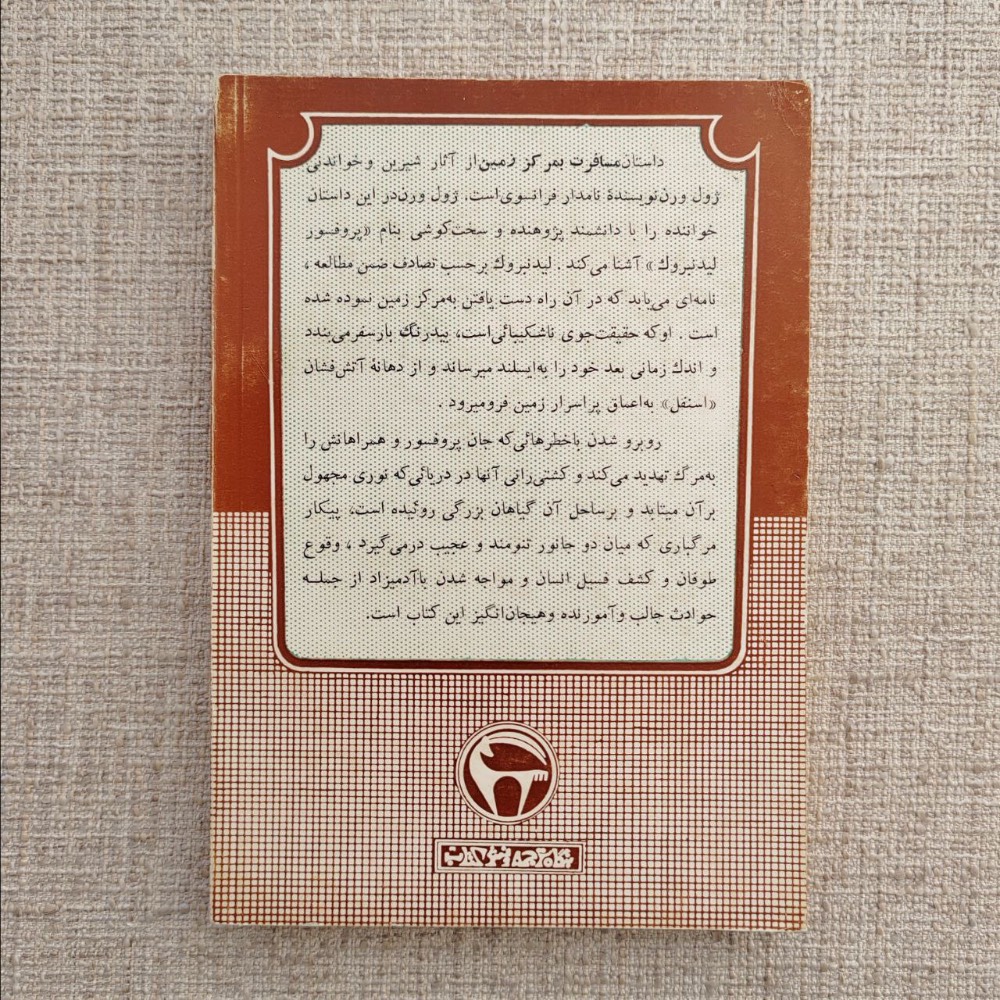 داستان مسافرت بمرکز زمین از آثار شیرین و خواندنی
ژول ورن نویسندهٔ نامدار فرانسوی است. ژول ورن در این داستان
خواننده را با دانشمند پژوهنده و سخت‌کوشی بنام «پروفسور
لیدنبروك» آشنا می‌کند . لیدنبروك برحسب تصادف ضمن مطالعه ،
نامه‌ای می‌یابد که در آن راه دست یافتن به‌مرکز زمین نموده شده
است . او که حقیقت‌جوی ناشکیبائی است، بیدرنگ بار سفر می‌بندد
و اندك زمانی بعد خود را به‌ایسلند میرساند و از دهانهٔ آتش‌فشان
«اسنفل» به‌اعماق پراسرار زمین فرومیرود .
روبرو شدن باخطرهائی‌که جان پروفسور و همراهانش را
به‌مرگ تهدید می‌کند و کشتی‌رانی آنها در دریائی‌که نوری مجهول
برآن میتابد و برساحل آن گیاهان بزرگی روئیده است، پیکار
مرگباری که میان دو جانور تنومند و عجیب درمی‌گیرد ، وقوع
طوفان و کشف فسیل انسان و مواجه شدن باآدمیزاد از جمله
حوادث جالب و آموزنده و هیجان‌انگیز این کتاب است.
بنگاه ترجمه و نشر کتاب